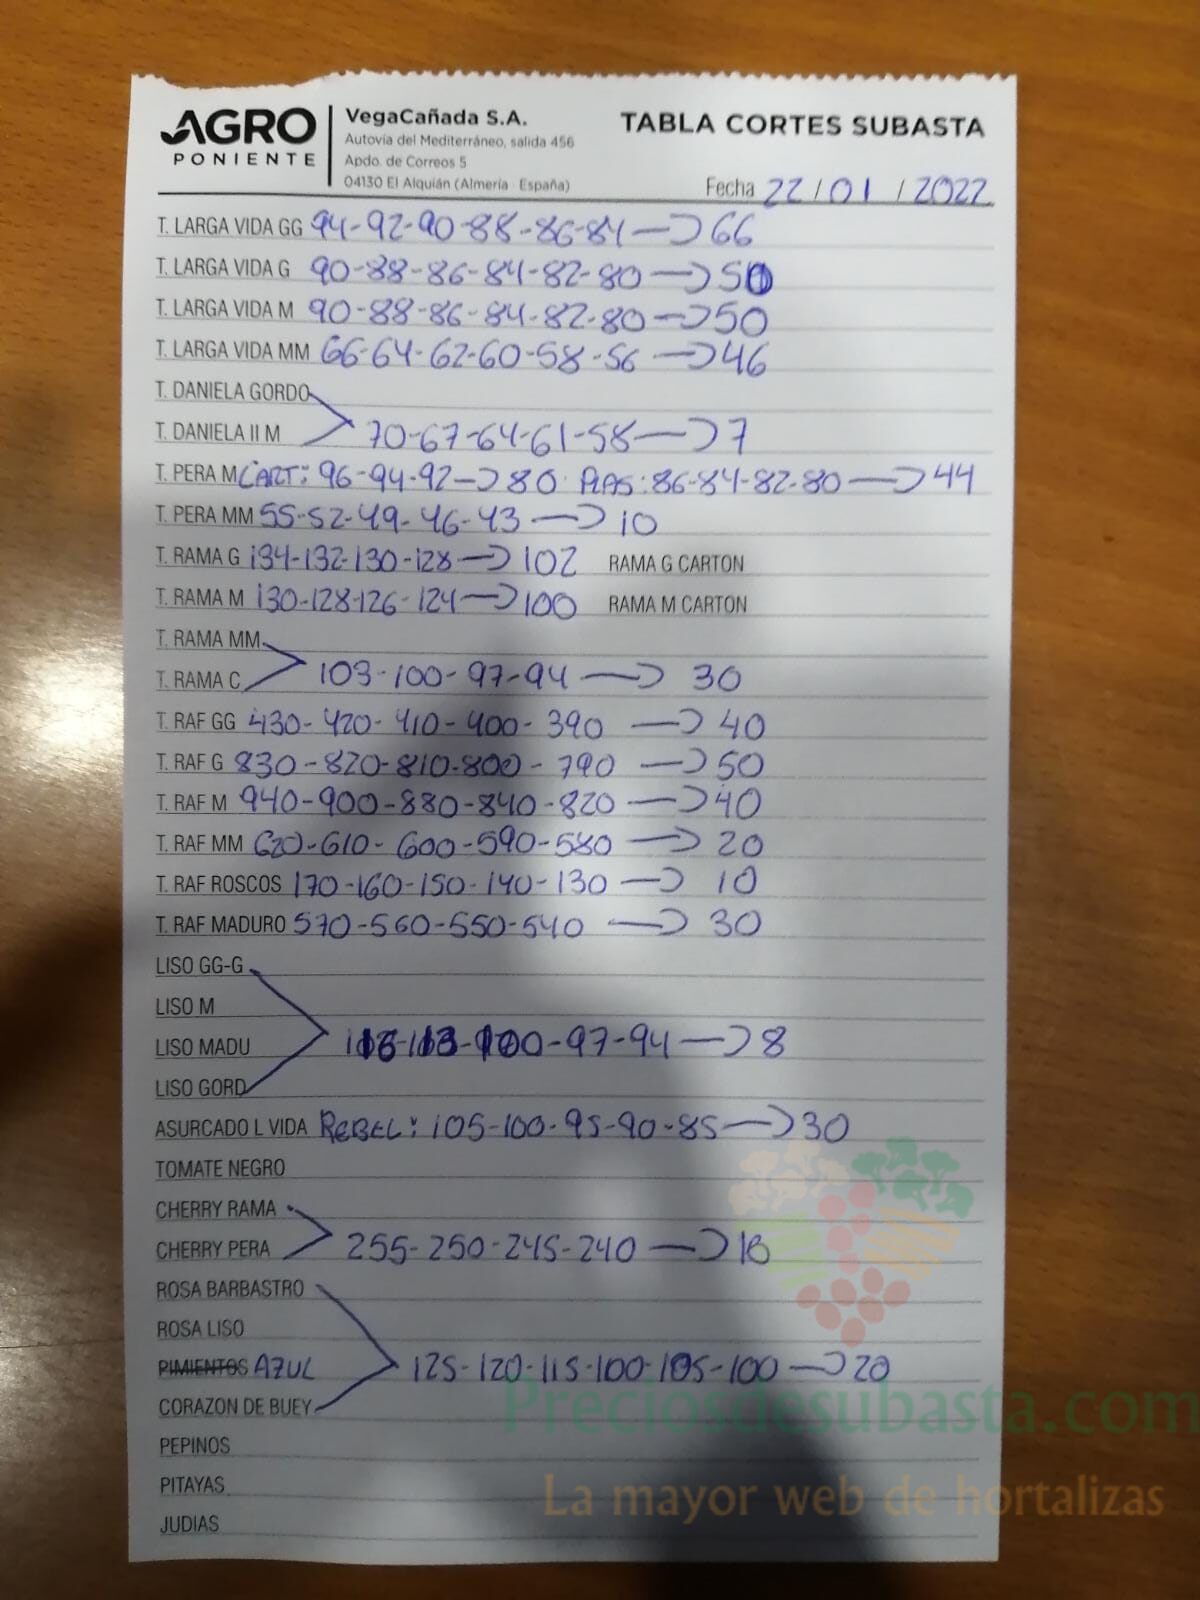 AGRO PONIENTE
VegaCañada S.A.
Autovía del Mediterráneo, salida 456
Apdo. de Correos 5
04130 El Alquián (Almería - España)
TABLA CORTES SUBASTA
Fecha 22/01/2022
T. LARGA VIDA GG 94-92-90-88-86-84→66
T. LARGA VIDA G 90-88-86-84-82-80→50
T. LARGA VIDA M 90-88-86-84-82-80→50
T. LARGA VIDA MM 66-64-62-60-58-56→46
T. DANIELA GORDO
T. DANIELA II M 70-67-64-61-58→7
T. PERA M CART: 96-94-92→80 PLAS: 86-84-82-80→44
T. PERA MM 55-52-49-46-43→10
T. RAMA G 134-132-130-128→102 RAMA G CARTON
T. RAMA M 130-128-126-124→100 RAMA M CARTON
T. RAMA MM
T. RAMA C 103-100-97-94→30
T. RAF GG 430-420-410-400-390→40
T. RAF G 830-820-810-800-790→50
T. RAF M 940-900-880-840-820→40
T. RAF MM 620-610-600-590-580→20
T. RAF ROSCOS 170-160-150-140-130→10
T. RAF MADURO 570-560-550-540→30
LISO GG-G
LISO M
LISO MADU -97-94→8
LISO GORD
ASURCADO L VIDA REBEL: 105-100-95-90-85→30
TOMATE NEGRO
CHERRY RAMA
CHERRY PERA 255-250-245-240→
ROSA BARBASTRO
ROSA LISO
PIMIENTOS AZUL 125-120-115-100-105-100→20
CORAZON DE BUEY
PEPINOS
PITAYAS
JUDIAS
Preciosdesubasta.com
La mayor web de hortalizas